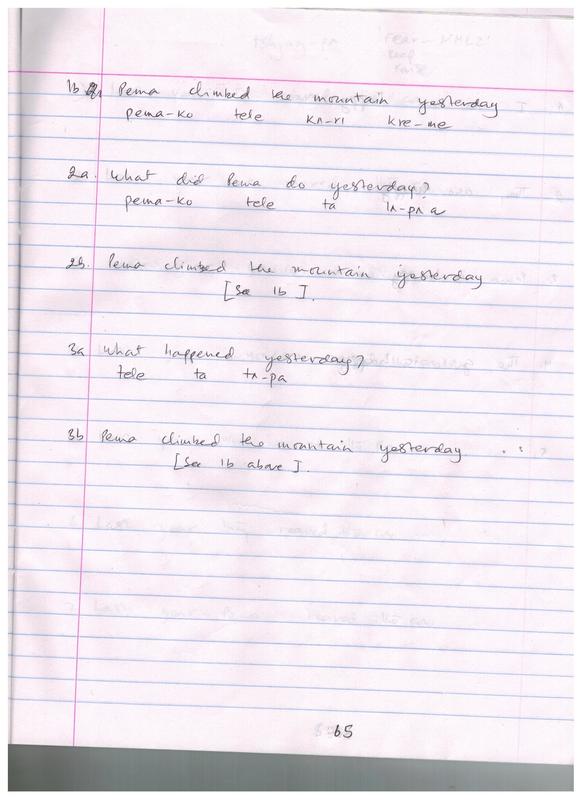 1b Pema climbed the mountain yesterday
pema-ko tele kʌ-ri kre-me
2a. What did Pema do yesterday?
pema-ko tele ta lʌ-pʌ a
2b. Pema climbed the mountain yesterday
[See 1b].
3a What happened yesterday?
tele ta tʌ-pa
3b Pema climbed the mountain yesterday
[See 1b above].
65